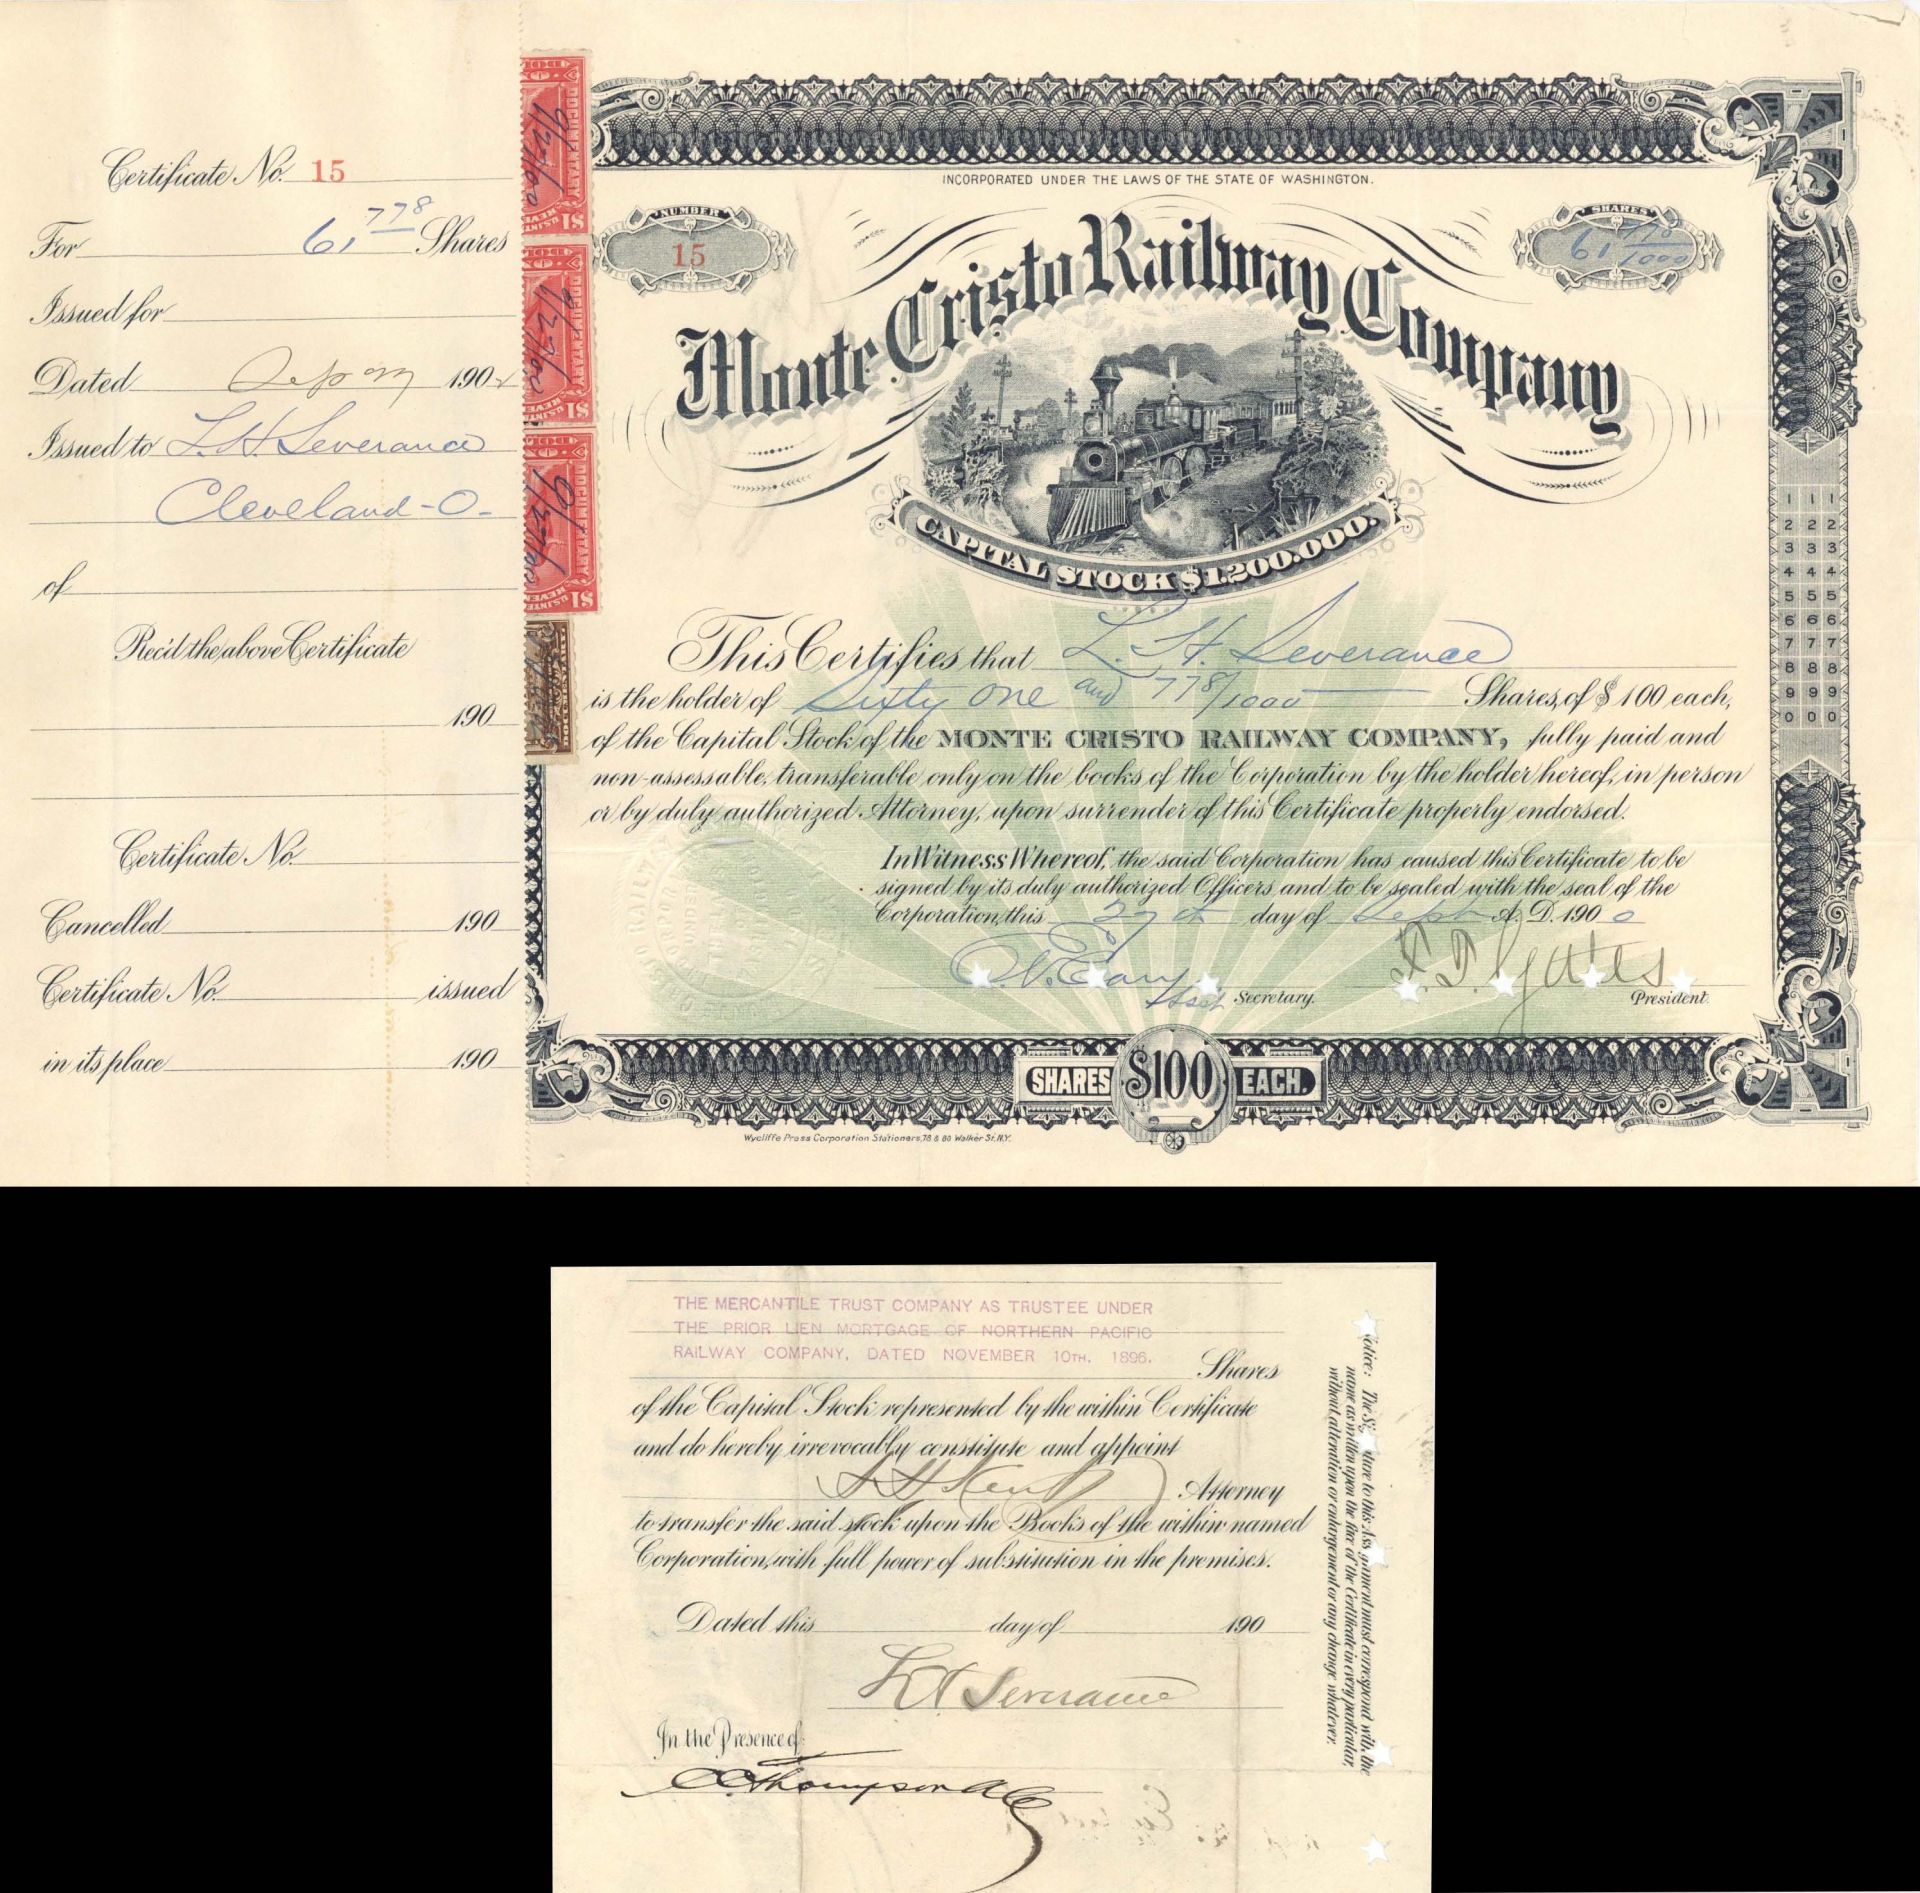 Certificate No. 15
For 61, 778 Shares
Issued for
Dated Sep 27 190
Issued to L. H. Severance
Cleveland - O -
of
Rec'd the above Certificate
190
Certificate No.
Cancelled 190
Certificate No. issued
in its place 190
DOCUMENTARY
$1
9/27/00
DOCUMENTARY
$1
9/27/00
DOCUMENTARY
$1
9/27/00
INCORPORATED UNDER THE LAWS OF THE STATE OF WASHINGTON.
NUMBER
15
SHARES
61 778/1000
Monte Cristo Railway Company
CAPITAL STOCK $1.200.000.
This Certifies that L. H. Severance
is the holder of Sixty One and 778/1000 Shares, of $100 each,
of the Capital Stock of the MONTE CRISTO RAILWAY COMPANY, fully paid and
non-assessable, transferable only on the books of the Corporation by the holder hereof, in person
or by duly authorized Attorney, upon surrender of this Certificate properly endorsed.
In Witness Whereof, the said Corporation has caused this Certificate to be
signed by its duly authorized Officers and to be sealed with the seal of the
Corporation, this 27th day of Sept A. D. 1900
Asst Secretary.
President.
1 1 1
2 2 2
3 3 3
4 4 4
5 5 5
6 6 6
7 7 7
8 8 8
9 9 9
0 0 0
SHARES $100 EACH.
Wycliffe Press Corporation Stationers, 78 & 80 Walker St. N.Y.
THE MERCANTILE TRUST COMPANY AS TRUSTEE UNDER
THE PRIOR LIEN MORTGAGE OF NORTHERN PACIFIC
RAILWAY COMPANY, DATED NOVEMBER 10TH. 1896.
Shares
of the Capital Stock represented by the within Certificate
and do hereby irrevocably constitute and appoint
Attorney
to transfer the said stock upon the Books of the within named
Corporation, with full power of substitution in the premises.
Dated this day of 190
L H Severance
In the Presence of:
Thompson
Notice: The Signature to this Assignment must correspond with the
name as written upon the face of the Certificate in every particular,
without alteration or enlargement or any change whatever.